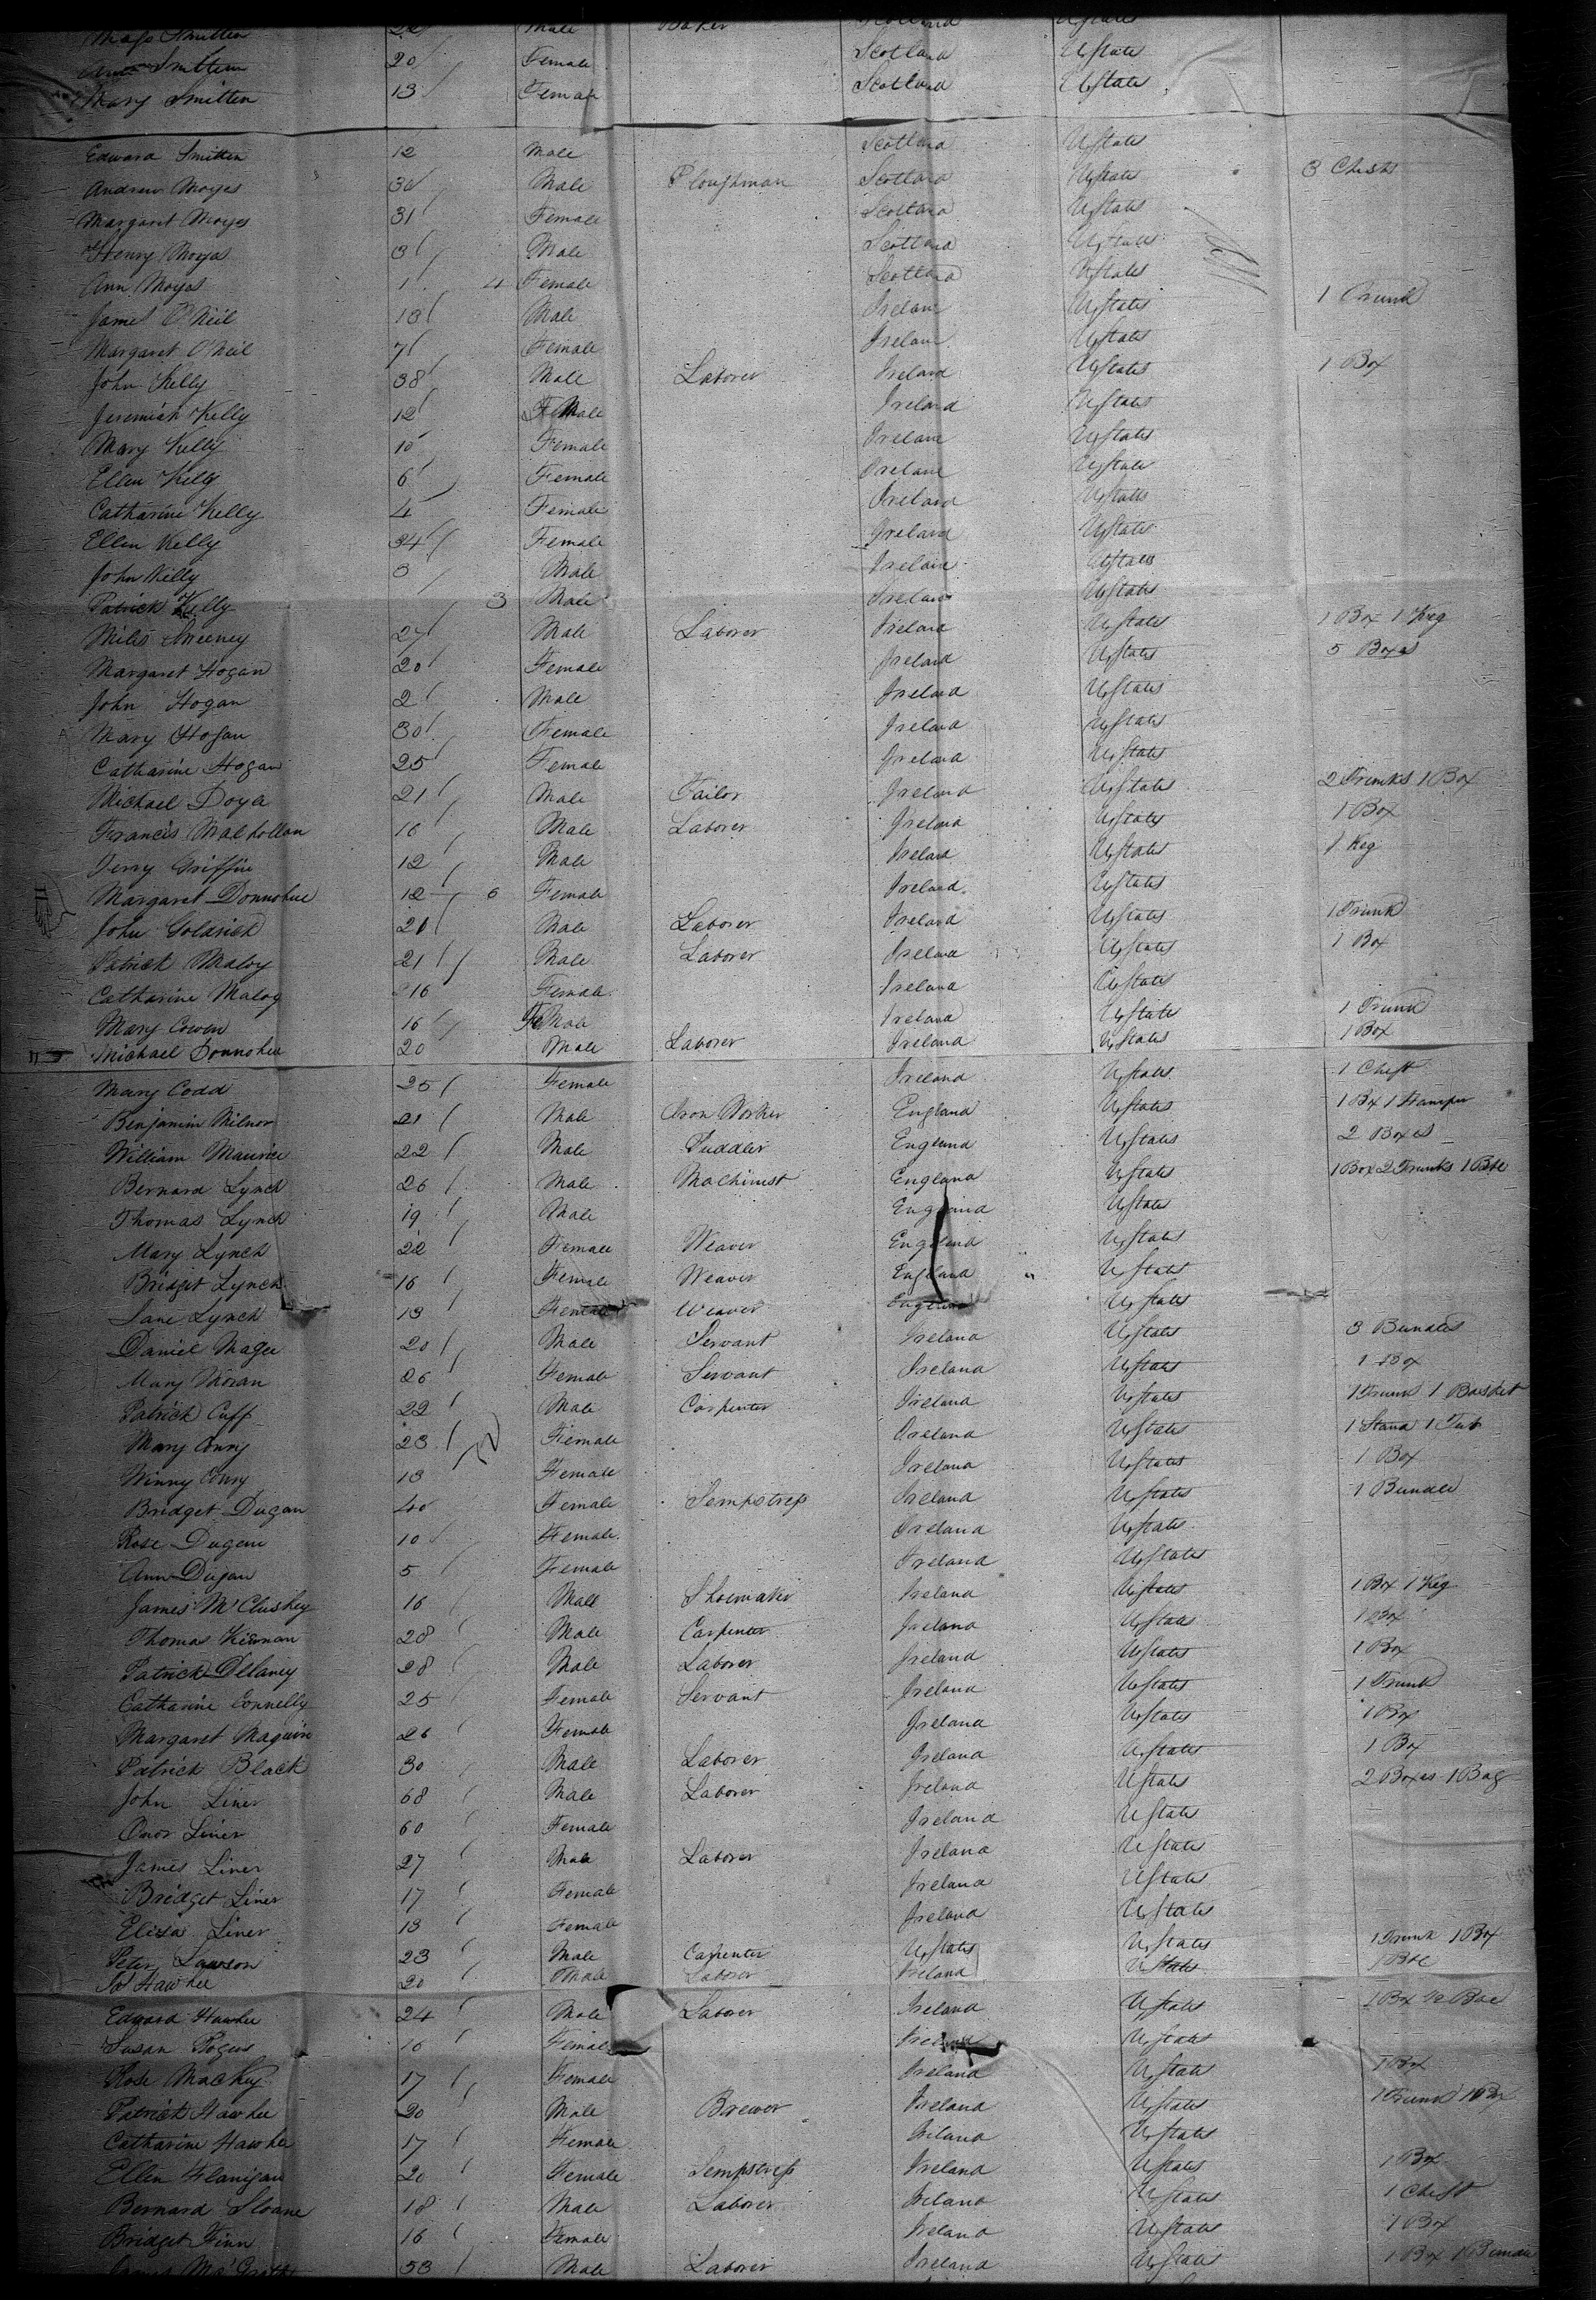 Smitten 22 Male Baker Scotland UStates
Ann Smitten 20 Female Scotland UState
Mary Smitten 13 Female Scotland UState
Edward Smitten 12 Male Scotland UStates
Andrew Moyes 30 Male Ploughman Scotland UStates 3 Chests
Margaret Moyes 31 Female Scotland UStates
Henry Moyes 3 Male Scotland UStates
Ann Moyes 1 4 Female Scotland UStates
James O'Neil 13 Male Ireland UStates 1 Trunk
Margaret O'Neil 7 Female Ireland UStates
John Kelly 38 Male Laborer Ireland UStates 1 Box
Jeremiah Kelly 12 Male Ireland UStates
Mary Kelly 10 Female Ireland UStates
Ellen Kelly 6 Female Ireland UStates
Catharine Kelly 4 Female Ireland UStates
Ellen Kelly 34 Female Ireland UStates
John Kelly 3 Male Ireland UStates
Patrick Kelly 3 Male Ireland UStates
Miles Sweeney 27 Male Laborer Ireland UStates 1 Box 1 Keg
Margaret Hogan 20 Female Ireland UStates 5 Boxes
John Hogan 2 Male Ireland UStates
Mary Hogan 30 Female Ireland UStates
Catharine Hogan 25 Female Ireland UStates
Michael Doyle 21 Male Tailor Ireland UStates 2 Trunks 1 Box
Francis Malhollan 16 Male Laborer Ireland UStates 1 Box
Terry Griffin 12 Male Ireland UStates 1 Keg
Margaret Donnohue 12 6 Female Ireland UStates
John Goldrick 21 Male Laborer Ireland UStates 1 Trunk
Patrick Maloy 21 Male Laborer Ireland UStates 1 Box
Catharine Maloy 16 Female Ireland UStates
Mary Cowen 16 FeMale Ireland UStates 1 Trunk
Michael Donnohue 20 Male Laborer Ireland UStates 1 Box
Mary Codd 25 Female Ireland UStates 1 Chest
Benjamin Milnor 21 Male Iron Worker England UStates 1 Bx 1 Hamper
William Maurice 22 Male Puddler England UStates 2 Boxes
Bernard Lynch 26 Male Machinist England UStates 1 Box 2 Trunks 1 Ble
Thomas Lynch 19 Male England UStates
Mary Lynch 22 Female Weaver England UStates
Bridget Lynch 16 Female Weaver England UStates
Jane Lynch 13 Female Weaver England UStates
Daniel Magee 20 Male Servant Ireland UStates 3 Bundles
Mary Moran 26 Female Servant Ireland UStates 1 Box
Patrick Cuff 22 Male Carpenter Ireland UStates 1 Trunk 1 Basket
Mary Conry 23 Female Ireland UStates 1 Stand 1 Tub
Winny Conry 13 Female Ireland UStates 1 Box
Bridget Dugan 40 Female Sempstress Ireland UStates 1 Bundle
Rose Dugan 10 Female Ireland UStates
Ann Dugan 5 Female Ireland UStates
James McCluskey 16 Male Shoemaker Ireland UStates 1 Box 1 Keg
Thomas Kiernan 28 Male Carpenter Ireland UStates 1 Box
Patrick Delaney 28 Male Laborer Ireland UStates 1 Box
Catharine Connelly 25 Female Servant Ireland UStates 1 Trunk
Margaret Maguire 26 Female Ireland UStates 1 Box
Patrick Black 30 Male Laborer Ireland UStates 1 Box
John Liner 68 Male Laborer Ireland UStates 2 Boxes 1 Bag
Onor Liner 60 Female Ireland UStates
James Liner 27 Male Laborer Ireland UStates
Bridget Liner 17 Female Ireland UStates
Eliza Liner 13 Female Ireland UStates
Peter Lawson 23 Male Carpenter UStates UStates 1 Trunk 1 Box
Hawkee 20 Male Laborer Ireland UStates 1 Ble
Edward Hawkee 24 Male Laborer Ireland UStates 1 Bx
Susan Rogers 16 Female Ireland UStates
Rose Mackey 17 Female Ireland UStates 1 Box
Patrick Hawkee 20 Male Brewer Ireland UStates 1 Trunk 1 Box
Catharine Hawkee 17 Female Ireland UStates
Ellen Flanigan 20 Female Sempstress Ireland UStates 1 Box
Bernard Sloane 18 Male Laborer Ireland UStates 1 Chest
Bridget Finn 16 Female Ireland UStates 1 Box
McGrath 53 Male Laborer Ireland UStates 1 Box 1 Bundle